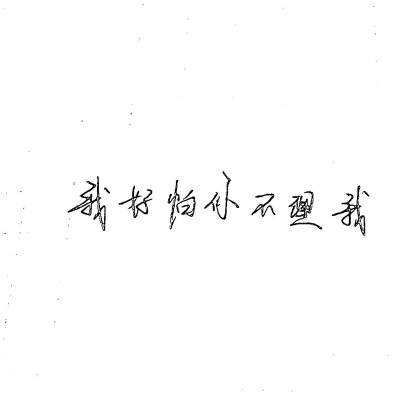 我好怕你不理我